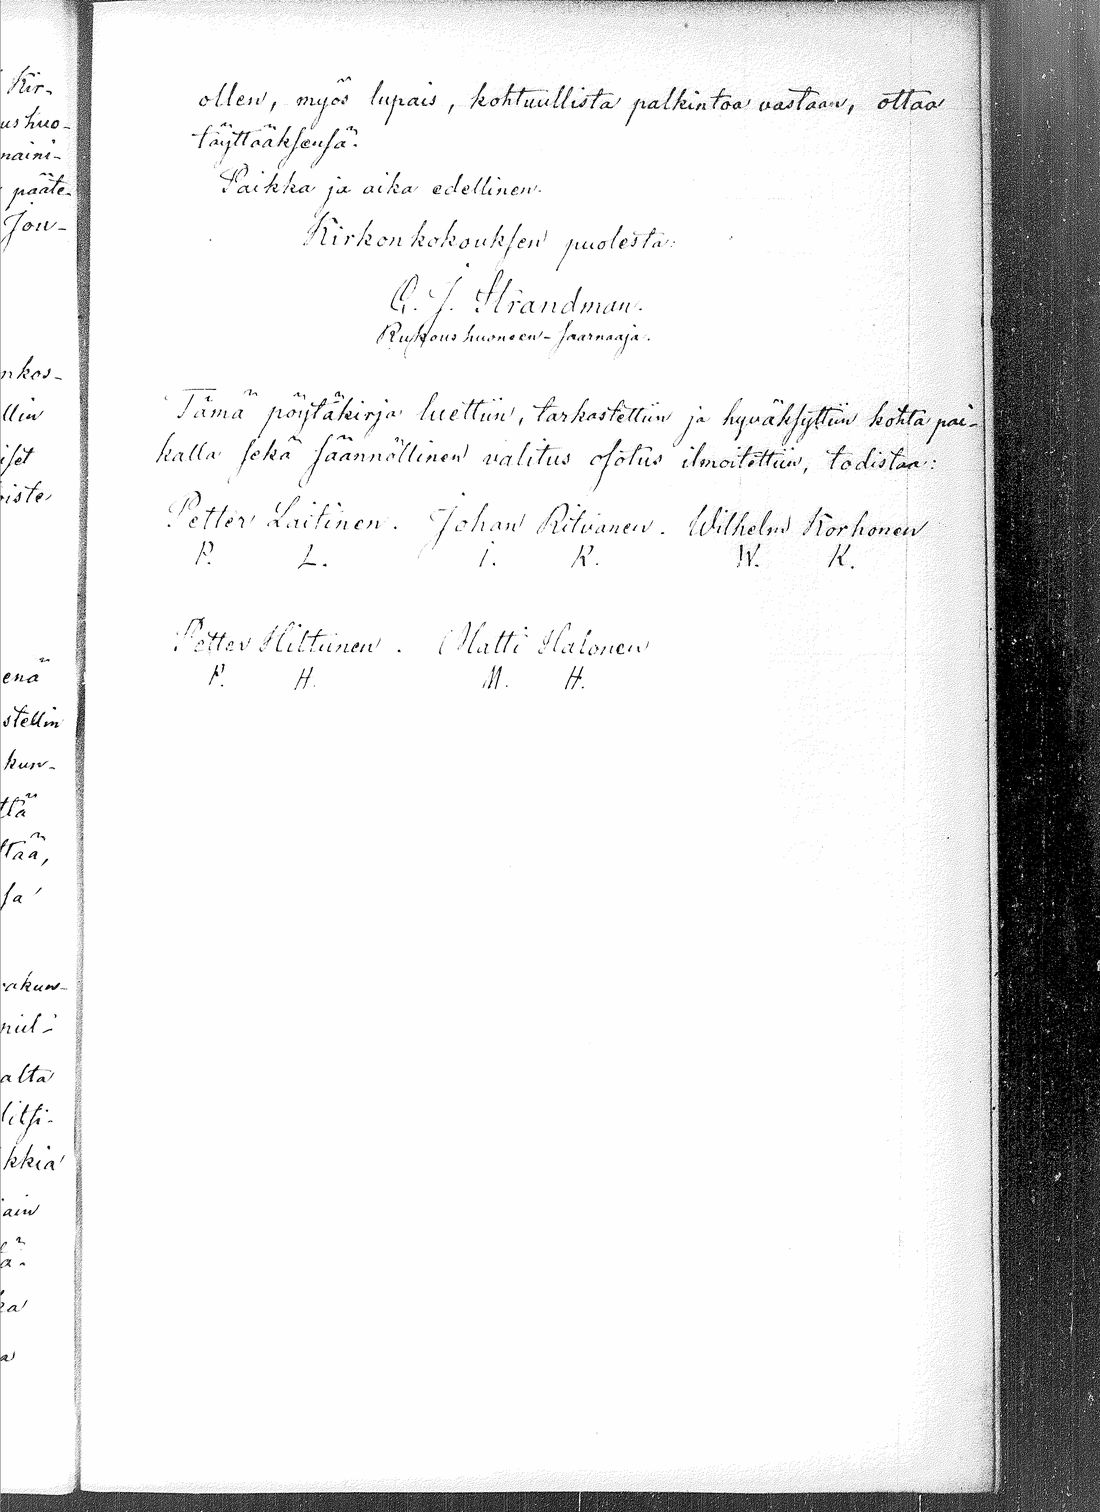 Kir-
us huo-
naini-
pääte-
Jou-
nkos-
llin
iset
oiste
enä
stellin
kun-
ttä
ltää,
sa
rakun-
niil-
alta
litsi-
kkia
ain
tä.
ka
a
ollen, myös lupais, kohtuullista palkintoa vastaan, ottaa
täyttääksensä.
Paikka ja aika edellinen.
Kirkonkokouksen puolesta:
G. J. Strandman.
Rukoushuoneen-Saarnaaja.
Tämä pöytäkirja luettiin, tarkastettiin ja hyväksyttiin kohta pai-
kalla sekä säännöllinen valitus osotus ilmoitettiin, todistaa:
Petter Laitinen. Johan Ritvanen. Wilhelm Korhonen
P. L. I. R. W. K.
Petter Hiltunen. Matti Halonen
P. H. M. H.